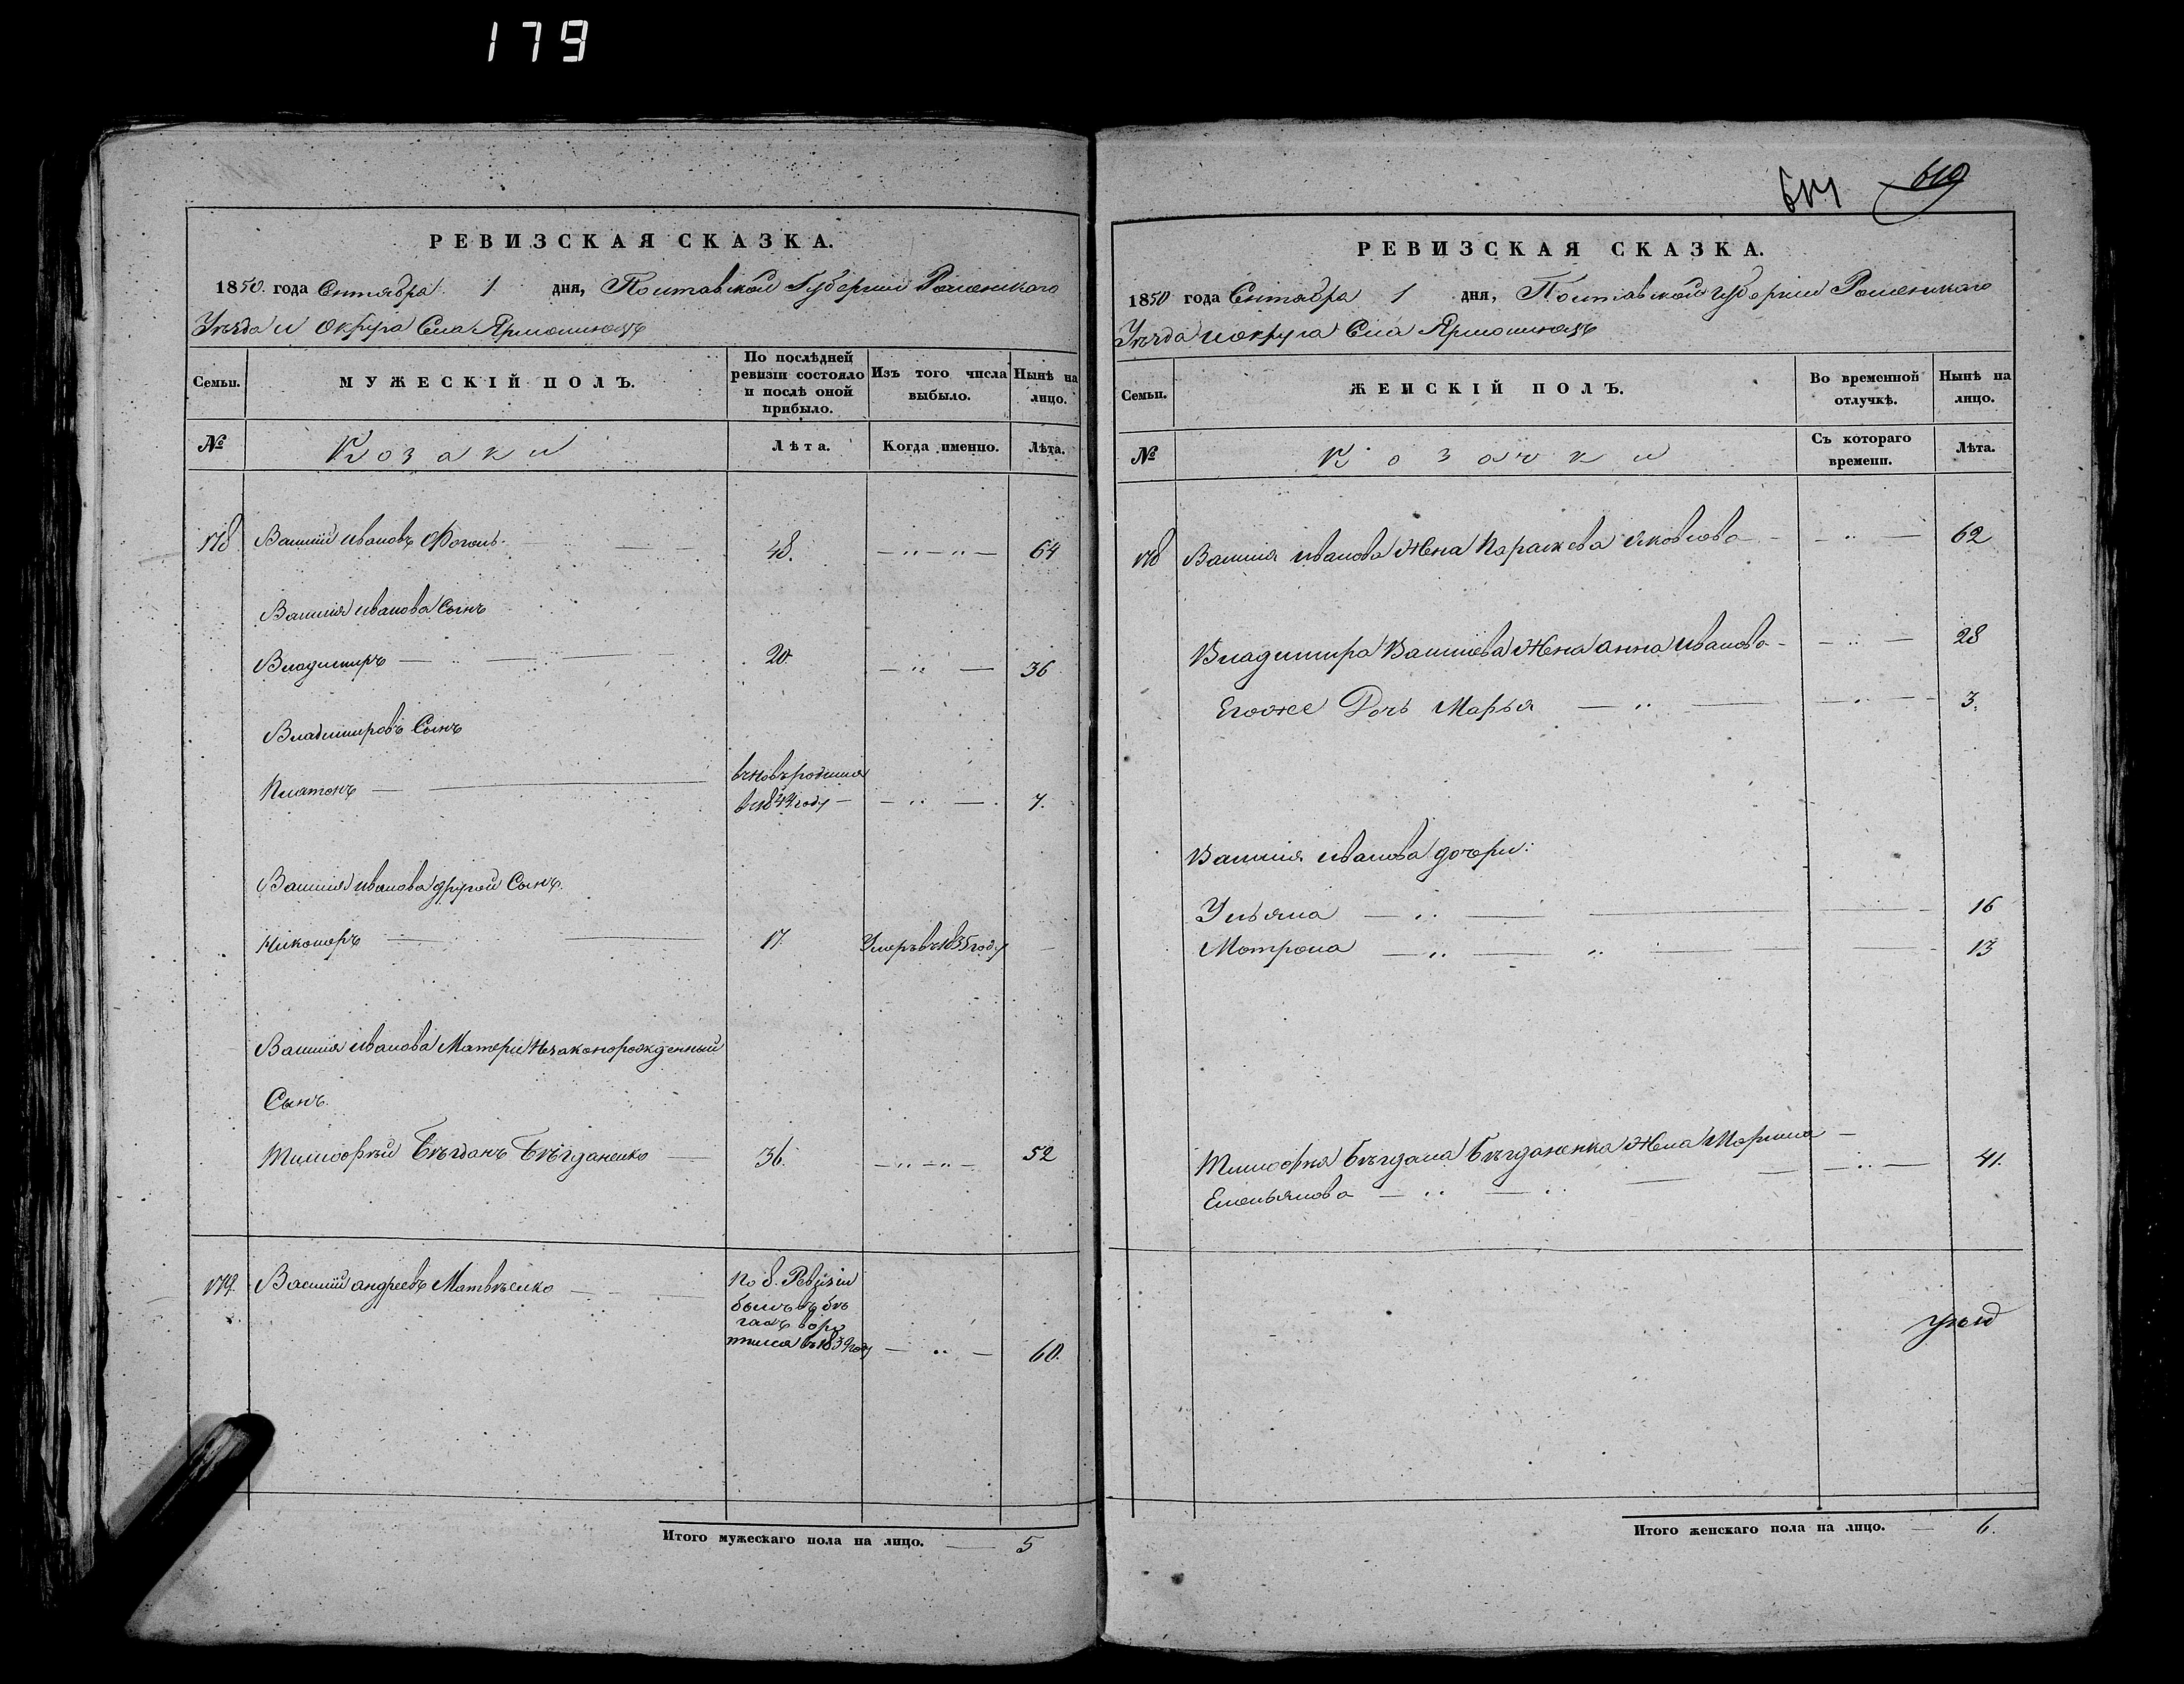 179
РЕВИЗСКАЯ СКАЗКА.
1850. года Сентября 1 дня, Полтавской Губернии Роменскаго
Уѣзда и округа Села Ярмолинецъ
Семьи.
МУЖЕСКІЙ ПОЛЪ.
По послѣдней ревизіи состояло и послѣ оной прибыло.
Изъ того числа выбыло.
Нынѣ на лицо.
№
Козаки
Лѣта.
Когда именно.
Лѣта.
178. Василій Ивановъ 48. 64
Василія Иванова Сынъ
Владимиръ 20. 36
Владимировъ Сынъ
Платонъ
вновь родился
в 1844 году 7.
Василія Иванова другой Сынъ.
Никоноръ 17. Умеръ въ 1835 году
Василія Иванова Матери Незаконорожденный
Сынъ.
Тимофѣй 36. 52
179. Василій Андреевъ Матвѣенко
По 8. Ревизіи
былъ въ бѣ
гахъ
въ 1839 году 60.
Итого мужескаго пола на лицо. 5
619
РЕВИЗСКАЯ СКАЗКА.
1850 года Сентября 1 дня, Полтавской губернии Роменскаго
Уѣзда и округа Села Ярмолинецъ
Семьи.
ЖЕНСКІЙ ПОЛЪ.
Во временной отлучкѣ.
Нынѣ на лицо.
№
Козачки
Съ котораго времени.
Лѣта.
178 Василия Иванова Жена Параскева Яковлева 62
Владимира Василіева Жена Анна Иванова 28
Егоже Дочь Марья 3.
Василия Иванова дочери:
Ульяна 16
Мотрона 13
Тимофея Жена Марина
Емельянова 41.
Итого женскаго пола на лицо. 6.